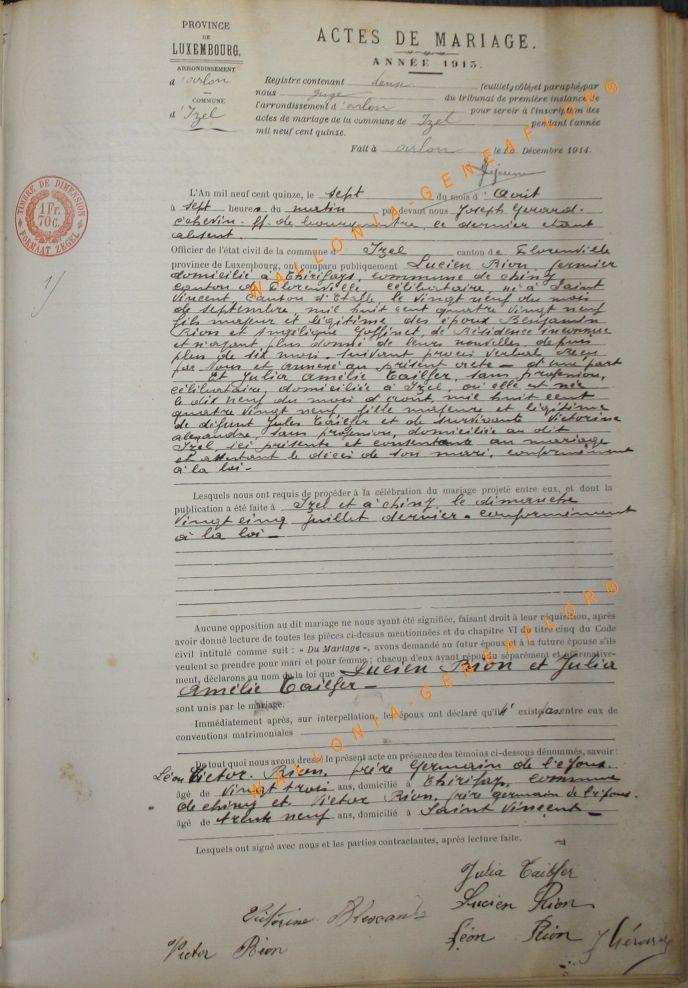 PROVINCE
DE
LUXEMBOURG.
ARRONDISSEMENT
d'Arlon
COMMUNE
d'Izel
ACTES DE MARIAGE.
ANNÉE 1915.
Registre contenant deux feuillets, côtés et paraphés par
nous Juge du tribunal de première instance de
l'arrondissement d'Arlon pour servir à l'inscription des
actes de mariage de la commune de Izel pendant l'année
mil neuf cent quinze.
Fait à Arlon le Décembre 1914.
TIMBRE DE DIMENSION
1 Fr. 70c.
FORMAAT ZEGEL
1/
L'An mil neuf cent quinze, le sept du mois d'Août
à sept heures du matin par devant nous Joseph Gerard
échevin ff. de bourgmestre, le dernier étant
absent
Officier de l'état civil de la commune d'Izel canton de Florenville
province de Luxembourg, ont comparu publiquement Lucien Rion, fermier
domicilié à Thirifays, commune de Chiny
canton de Florenville, célibataire, né à Saint
Vincent, canton d'Etalle, le vingt neuf du mois
de septembre, mil huit cent quatre vingt neuf
fils majeur et légitime des époux Benjamin
Rion et Angélique Goffinet, de Résidence inconnue
et n'ayant plus donné de leurs nouvelles depuis
plus de six mois, suivant procès verbal Reçu
par Nous et annexé au présent acte - d'une part
Et Julia Amélie Tailfer, sans profession,
célibataire, domiciliée à Izel, où elle est née
le dix neuf du mois d'août, mil huit cent
quatre vingt neuf, fille majeure et légitime
de défunt Jules Tailfer et de survivante Victorine
Alexandre, sans profession, domiciliée au dit
Izel, ici présente et consentante au mariage
et attestant le décès de son mari, conformément
à la loi -
Lesquels nous ont requis de procéder à la célébration du mariage projeté entre eux, et dont la
publication a été faite à Izel et à Chiny, le dimanche
vingt cinq juillet dernier - conformément
à la loi -
Aucune opposition au dit mariage ne nous ayant été signifiée, faisant droit à leur réquisition, après
avoir donné lecture de toutes les pièces ci-dessus mentionnées et du chapitre VI du titre cinq du Code
civil intitulé comme suit : « Du Mariage », avons demandé au futur époux et à la future épouse s'ils
veulent se prendre pour mari et pour femme ; chacun d'eux ayant répondu séparément et affirmative-
ment, déclarons au nom de la loi que Lucien Rion et Julia
Amélie Tailfer -
sont unis par le mariage.
Immédiatement après, sur interpellation, les époux ont déclaré qu'il n'existe pas entre eux de
conventions matrimoniales
De tout quoi nous avons dressé le présent acte en présence des témoins ci-dessous dénommés, savoir :
Léon Victor Rion, frère Germain de l'époux
âgé de vingt trois ans, domicilié à Thirifays, commune
de Chiny et Victor Rion, frère germain de l'époux
âgé de trente neuf ans, domicilié à Saint Vincent -
Lesquels ont signé avec nous et les parties contractantes, après lecture faite.
Julia Tailfer
Victorine
Lucien Rion
Victor Rion
Léon Rion
J Gérard
WALLONIA-GENEAFLOR®
WALLONIA-GENEAFLOR®